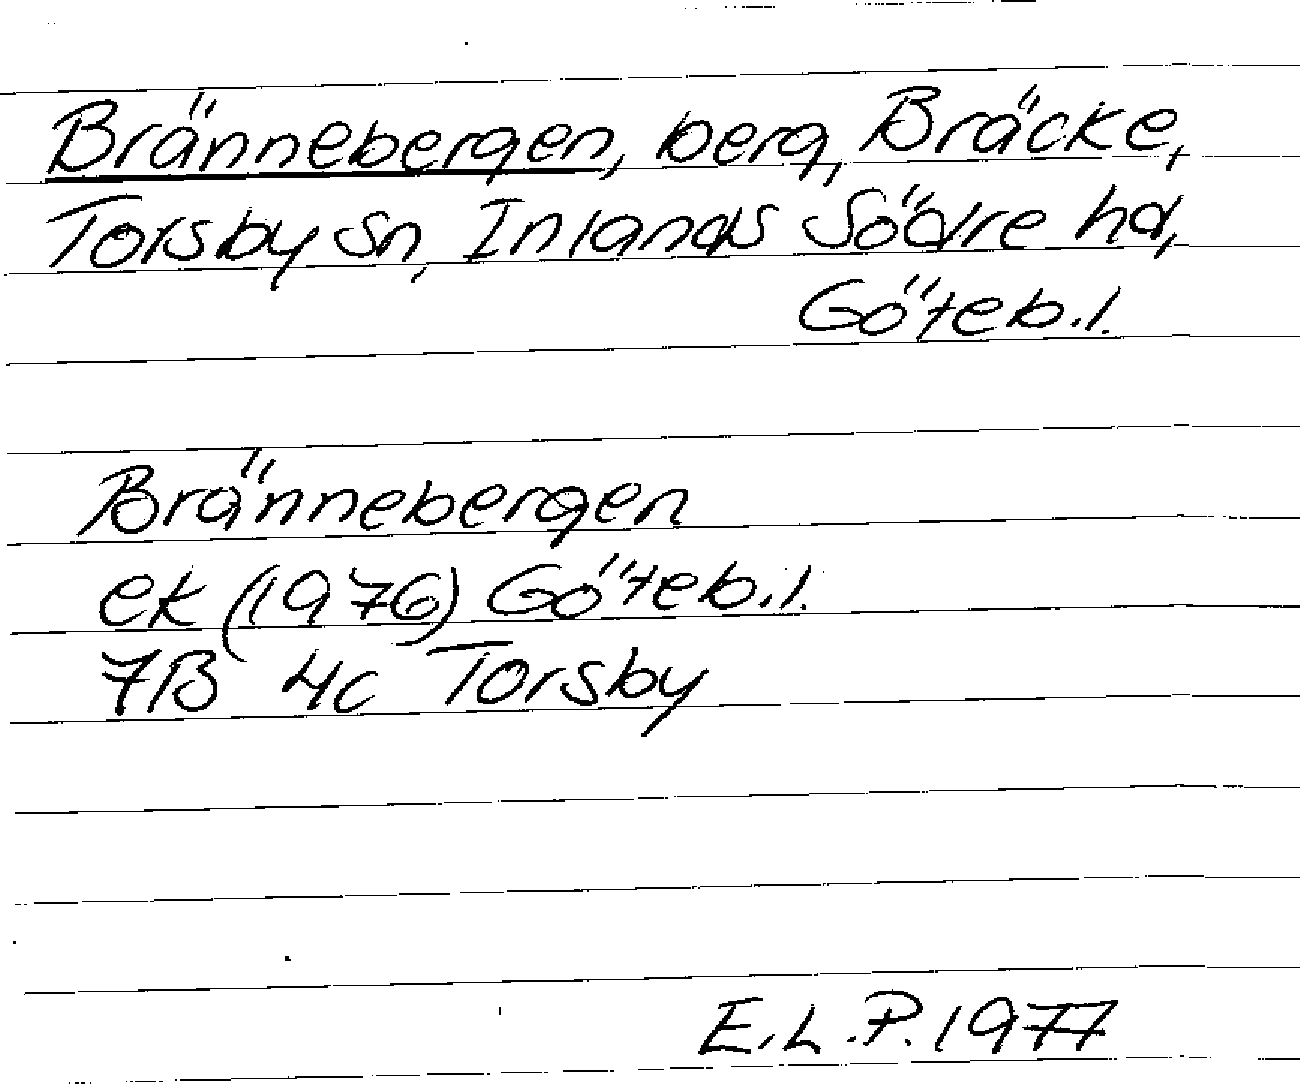 Brännebergen, berg, Bräcke,
Torsby sn, Inlands Södre hd,
Göteb.l.
Brännebergen
ek (1976) Göteb.l.
7B 4c Torsby
E.L.P. 1977